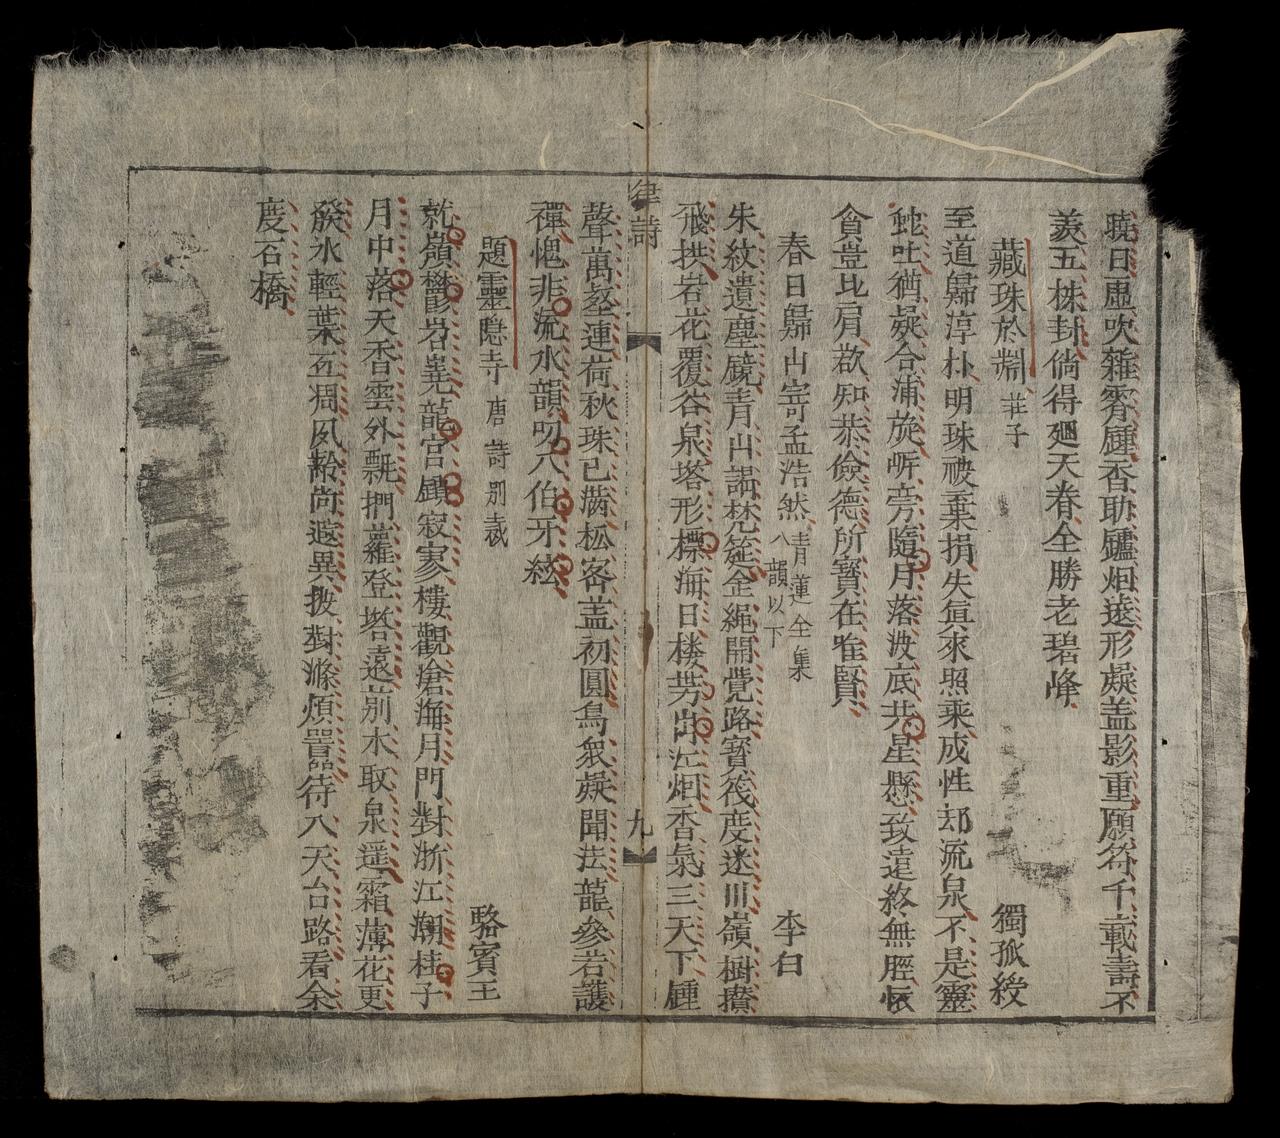 曉日虛吹雜霽煙香助鑪烟遠形凝盖影重願符千載壽不
羨五株封倘得廻天眷全勝老碧峰
藏珠於淵 莊子 獨孤綬
至道歸淳朴明珠被棄捐失真來照乘成性却流泉不是靈
蛇吐猶疑合浦旋岸旁隨月落波底共星懸致遠終無脛懷
貪豈比肩欲知恭儉德所寳在唯賢
春日歸山寄孟浩然 青蓮全集 八韻以下 李白
朱紋遺塵境青山謁梵筵金繩開覺路寳筏度迷川嶺樹攅
飛拱岩花覆谷泉塔形標海日楼勢出江烟香氣三天下鍾
聲萬壑連荷秋珠已滿松密盖初圓鳥衆疑聞法龍參若護
禪愧非流水韻叨入伯牙絃
律詩 九
題靈隐寺 唐詩别裁 駱賓王
就嶺欎岧嶤龍宮鎖寂寥樓觀滄海月門對浙江潮桂子
月中落天香雲外飄捫蘿登塔遠刳木取泉遥霜薄花更
發氷輕葉𠀉凋夙齡尚遐異披對滌煩囂待入天台路看余
度石橋